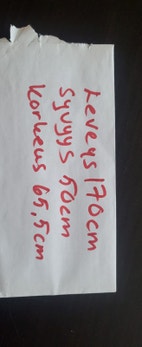 Leveys 170cm
Syvyys 50cm
korkeus 65,5cm